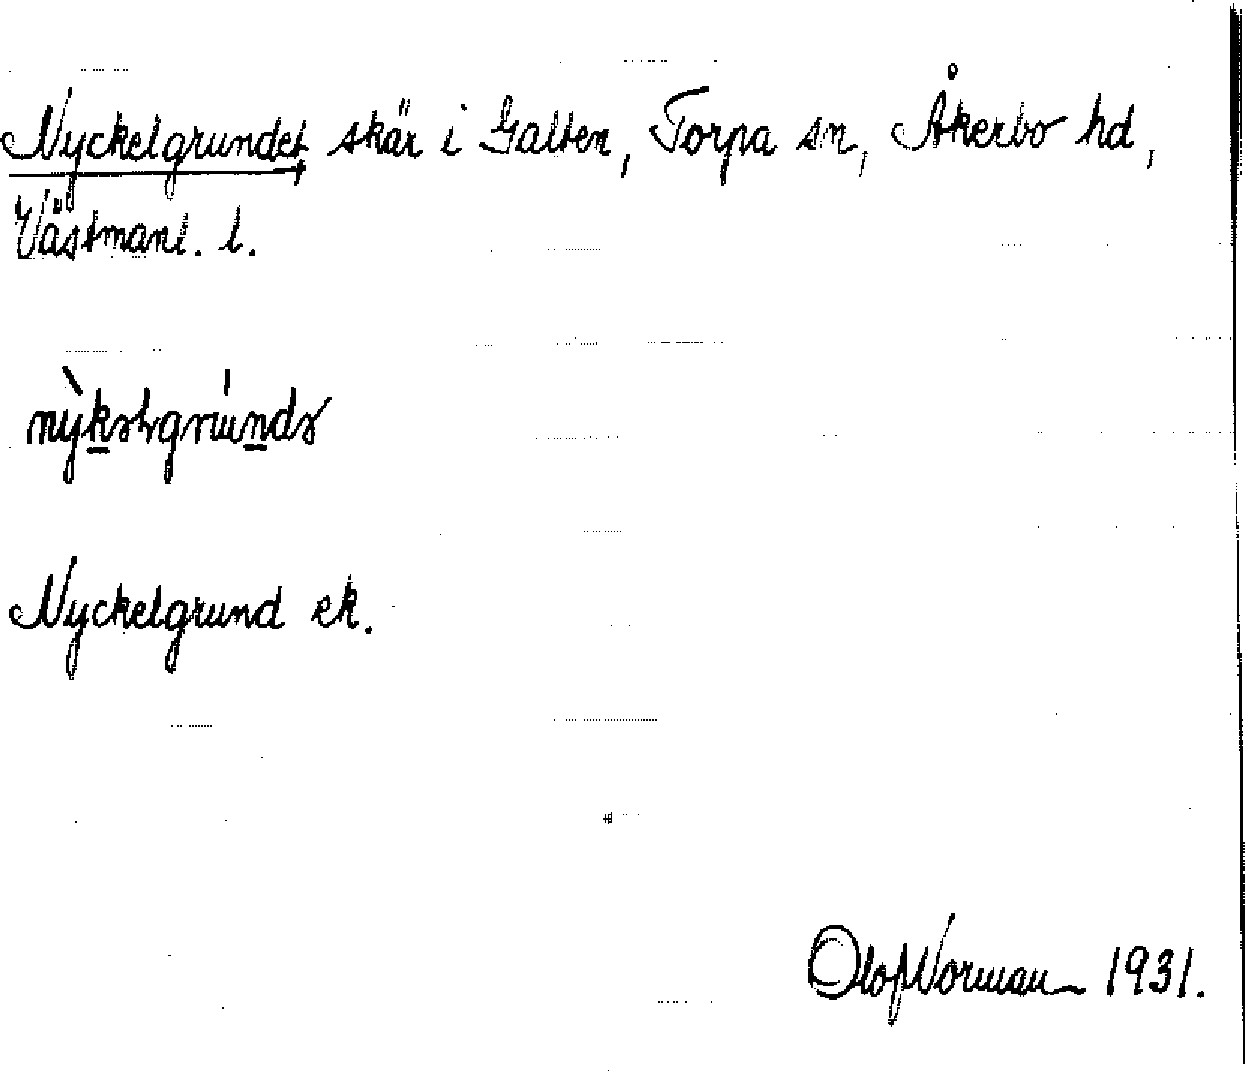 Nyckelgrundet, skär i Galten, Torpa sn, Åkerbo hd,
Västmanl. l.
Nyckelgrund ek.
Olof Norman 1931.